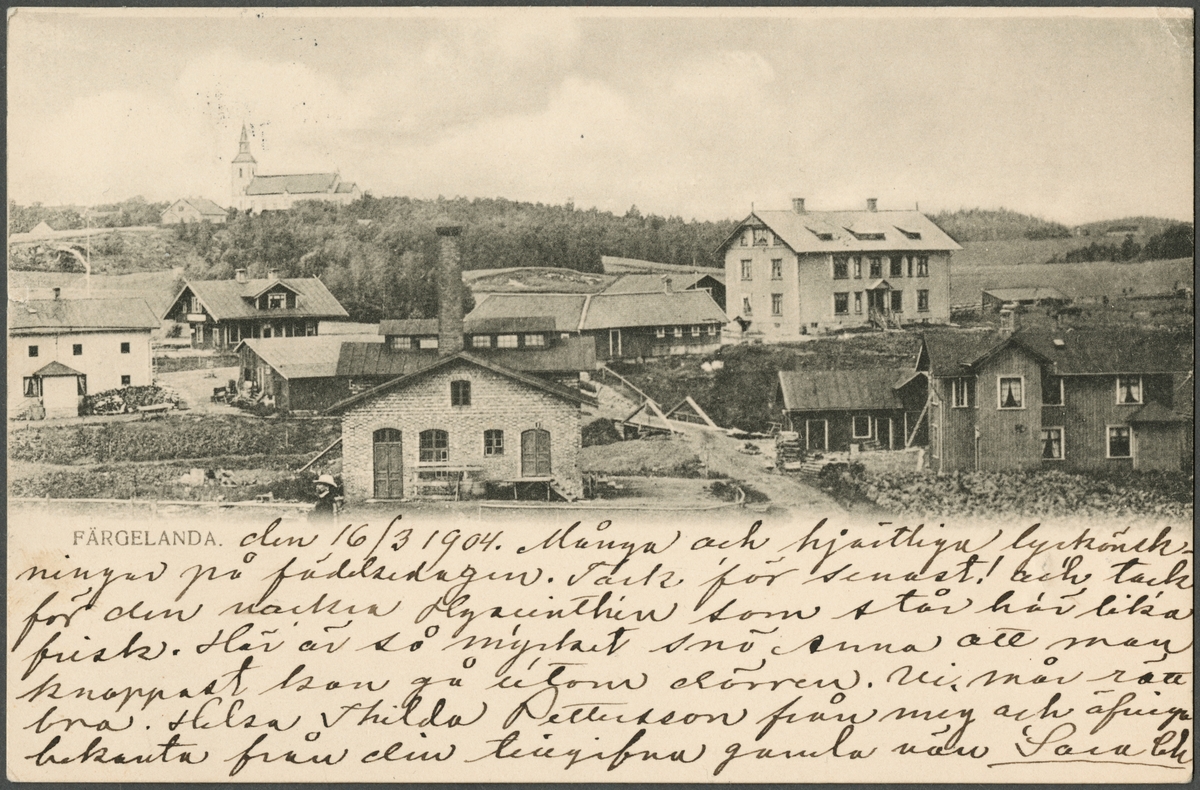 FÄRGELANDA. den 16/3 1904. Många och hjärtliga lyckönsk-
ningar på födelsedagen. Tack för senast! och tack
för den vackra Hyacinthen som står här lika
frisk. Här är så mycket snö Anna att man
knappast kan gå utom dörren. Vi mår rätt
bra. Helsa Thilda Pettersson från mig och öfriga
bekanta från din tillgifna gamla vän Sara